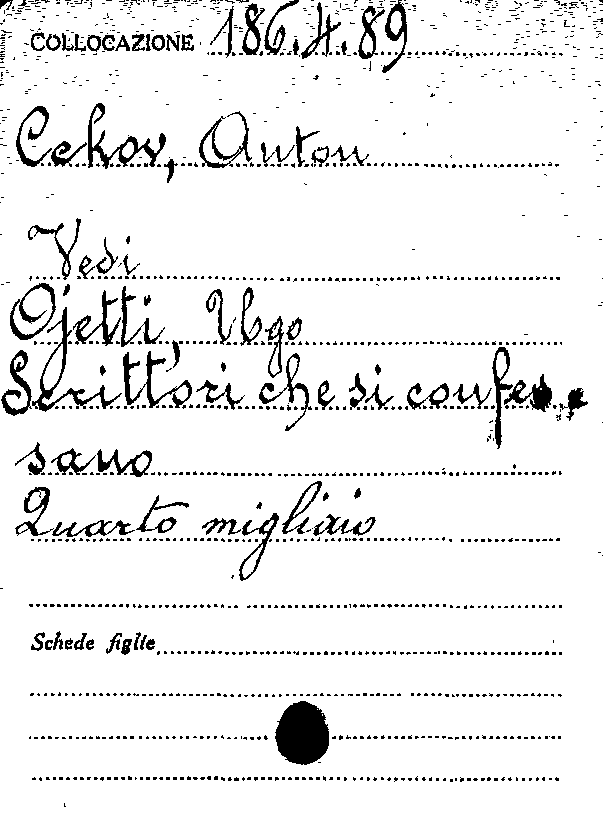 COLLOCAZIONE 186.4.89
Cekov, Anton
Vedi
Ojetti, Ugo
Scrittori che si confes-
sano
Quarto migliaio
Schede figlie